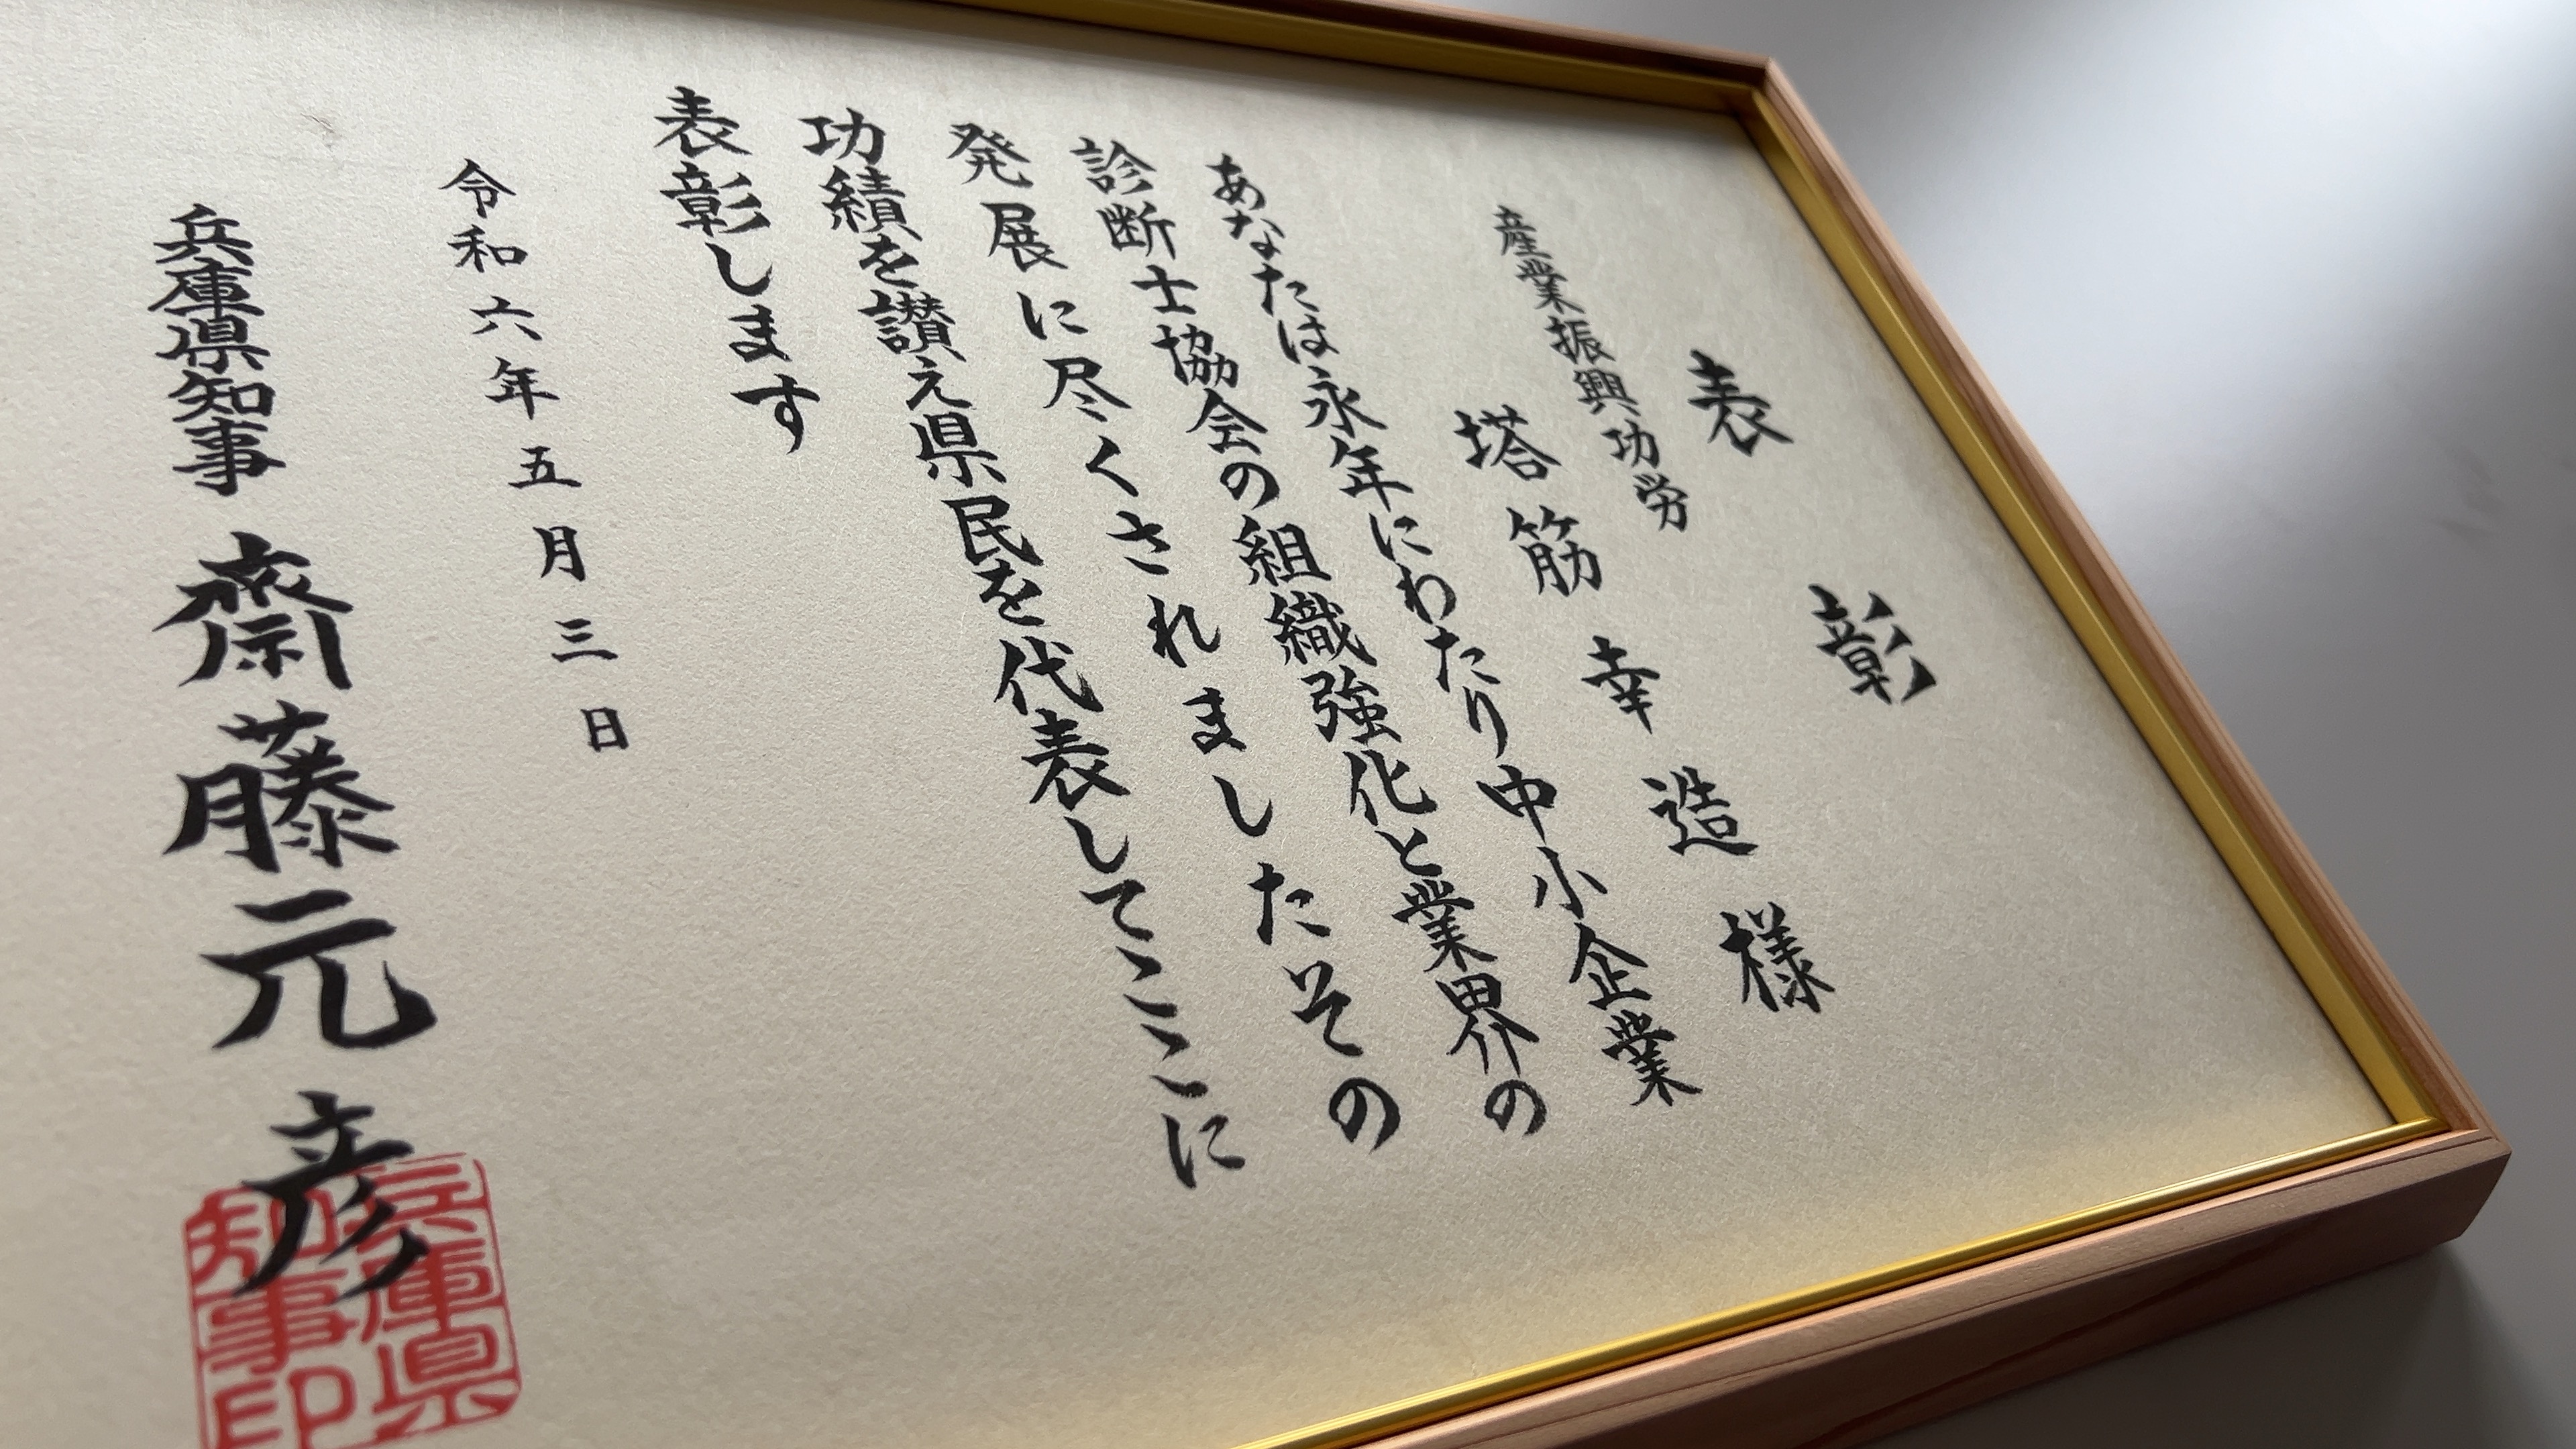 表彰
産業振興功労
塔筋幸造様
あなたは永年にわたり中小企業
診断士協会の組織強化と業界の
発展に尽くされましたその
功績を讃え県民を代表してここに
表彰します
令和六年五月三日
兵庫県知事 齋藤元彦
兵庫県
知事印